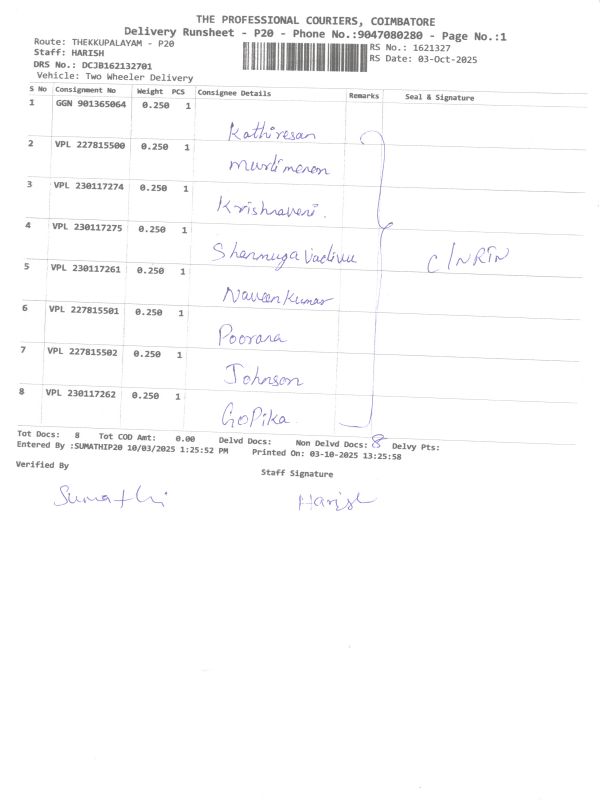 THE PROFESSIONAL COURIERS, COIMBATORE
Delivery Runsheet - P20 - Phone No.:9047080280 - Page No.:1
Route: THEKKUPALAYAM - P20 RS No.: 1621327
Staff: HARISH RS Date: 03-Oct-2025
DRS No.: DCJB162132701
Vehicle: Two Wheeler Delivery
S No Consignment No Weight PCS Consignee Details Remarks Seal & Signature
1 GGN 901365064 0.250 1 Kathiresan
2 VPL 227815500 0.250 1 murli menon
3 VPL 230117274 0.250 1 Krishnaveni.
4 VPL 230117275 0.250 1 Shanmuga Vadivu C/NRTN
5 VPL 230117261 0.250 1 Naveen Kumar
6 VPL 227815501 0.250 1 Poorana
7 VPL 227815502 0.250 1 Johnson
8 VPL 230117262 0.250 1 GoPika
Tot Docs: 8 Tot COD Amt: 0.00 Delvd Docs: Non Delvd Docs: 8 Delvy Pts:
Entered By :SUMATHIP20 10/03/2025 1:25:52 PM Printed On: 03-10-2025 13:25:58
Verified By Staff Signature
Sumathi Harish